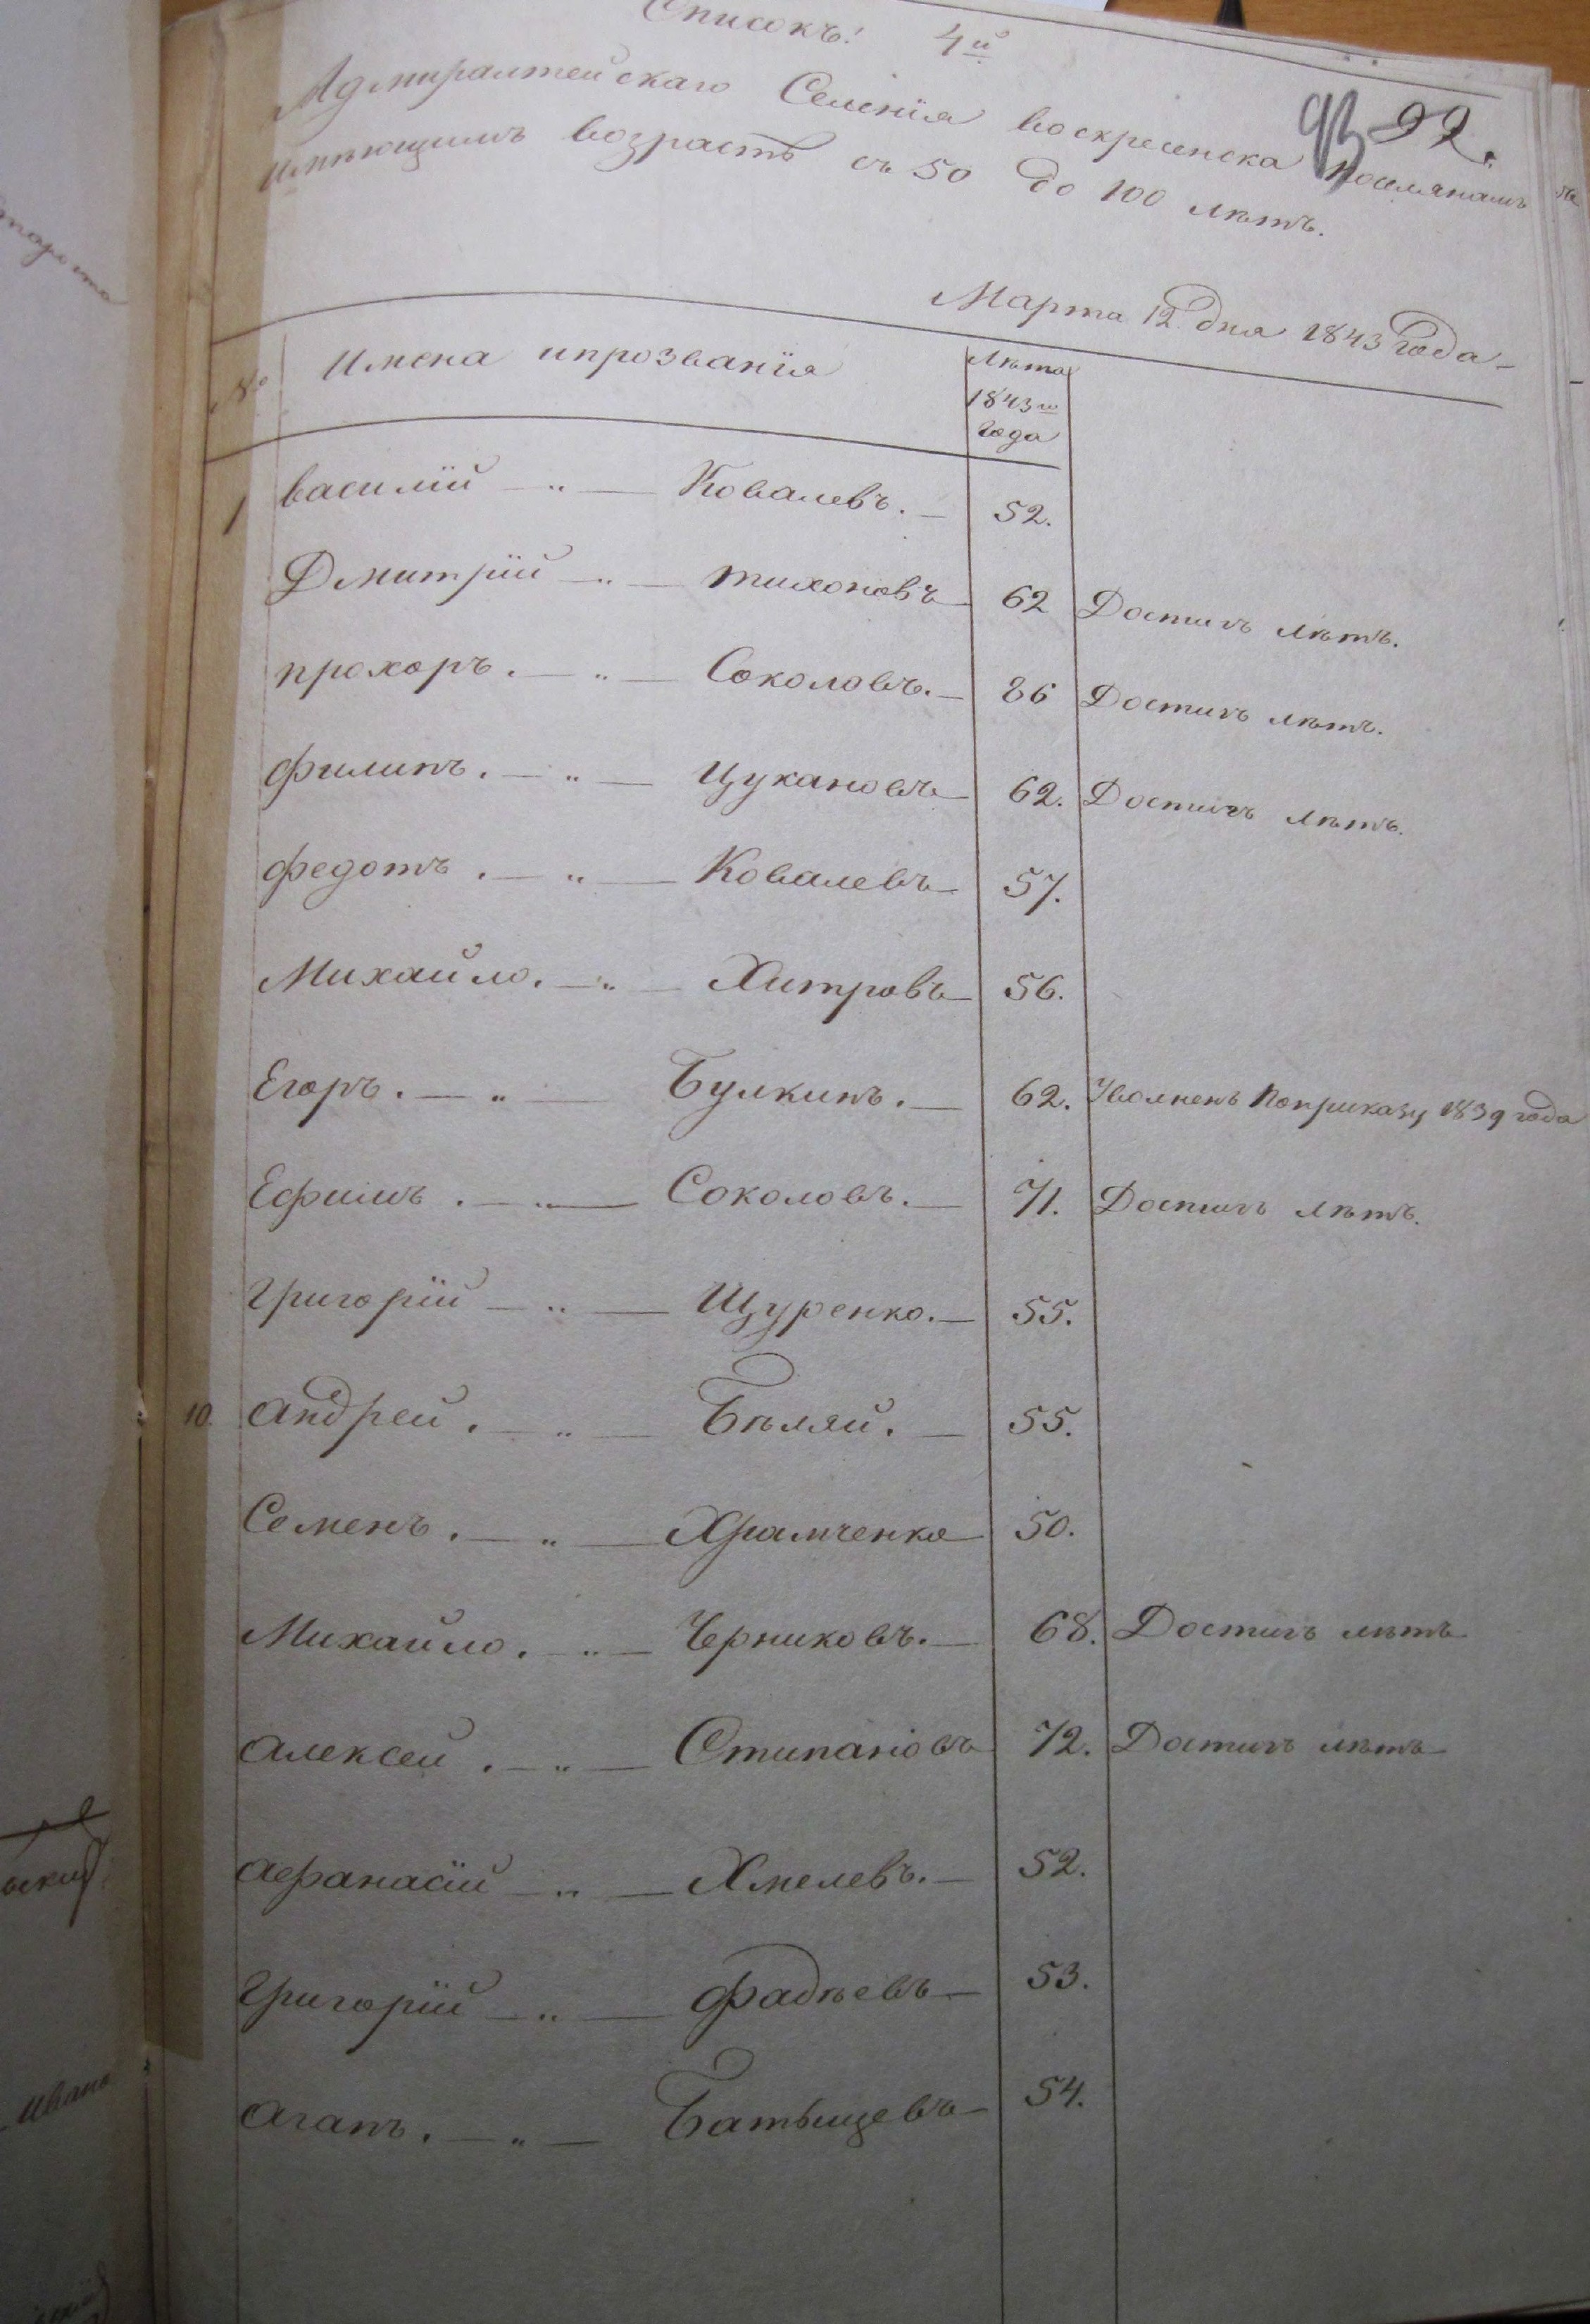 Списокъ! 4й
93 92.
Адмиралтейскаго Селенїя воскресенска поселянамъ
имѣющимъ возрастъ съ 50 до 100 лѣтъ.
Марта 12 дня 1843 года
№ Имена ипрозванїя Лѣта 1843го года
1 василїй Ковалевъ. 52.
Дмитрїй тихоновъ 62 Достигъ лѣтъ.
прохоръ. Соколовъ. 86 Достигъ лѣтъ.
филипъ. Цукановъ 62. Достигъ лѣтъ.
федотъ. Ковалевъ 57.
Михайло. Хитровъ 56.
Егоръ. Булкинъ. 62. Уволненъ Поприказу 1839 года
Ефимъ. Соколовъ. 71. Достигъ лѣтъ.
Григорїй Щуренко. 55.
10. андрей. Бѣляй. 55.
Семенъ. Храмченко 50.
Михайло. Черниковъ. 68. Достигъ лѣтъ
алексей. Стипановъ 72. Достигъ лѣтъ
афанасїй Хмелевъ. 52.
Григорїй фадѣевъ 53.
агапъ. Батищевъ 54.